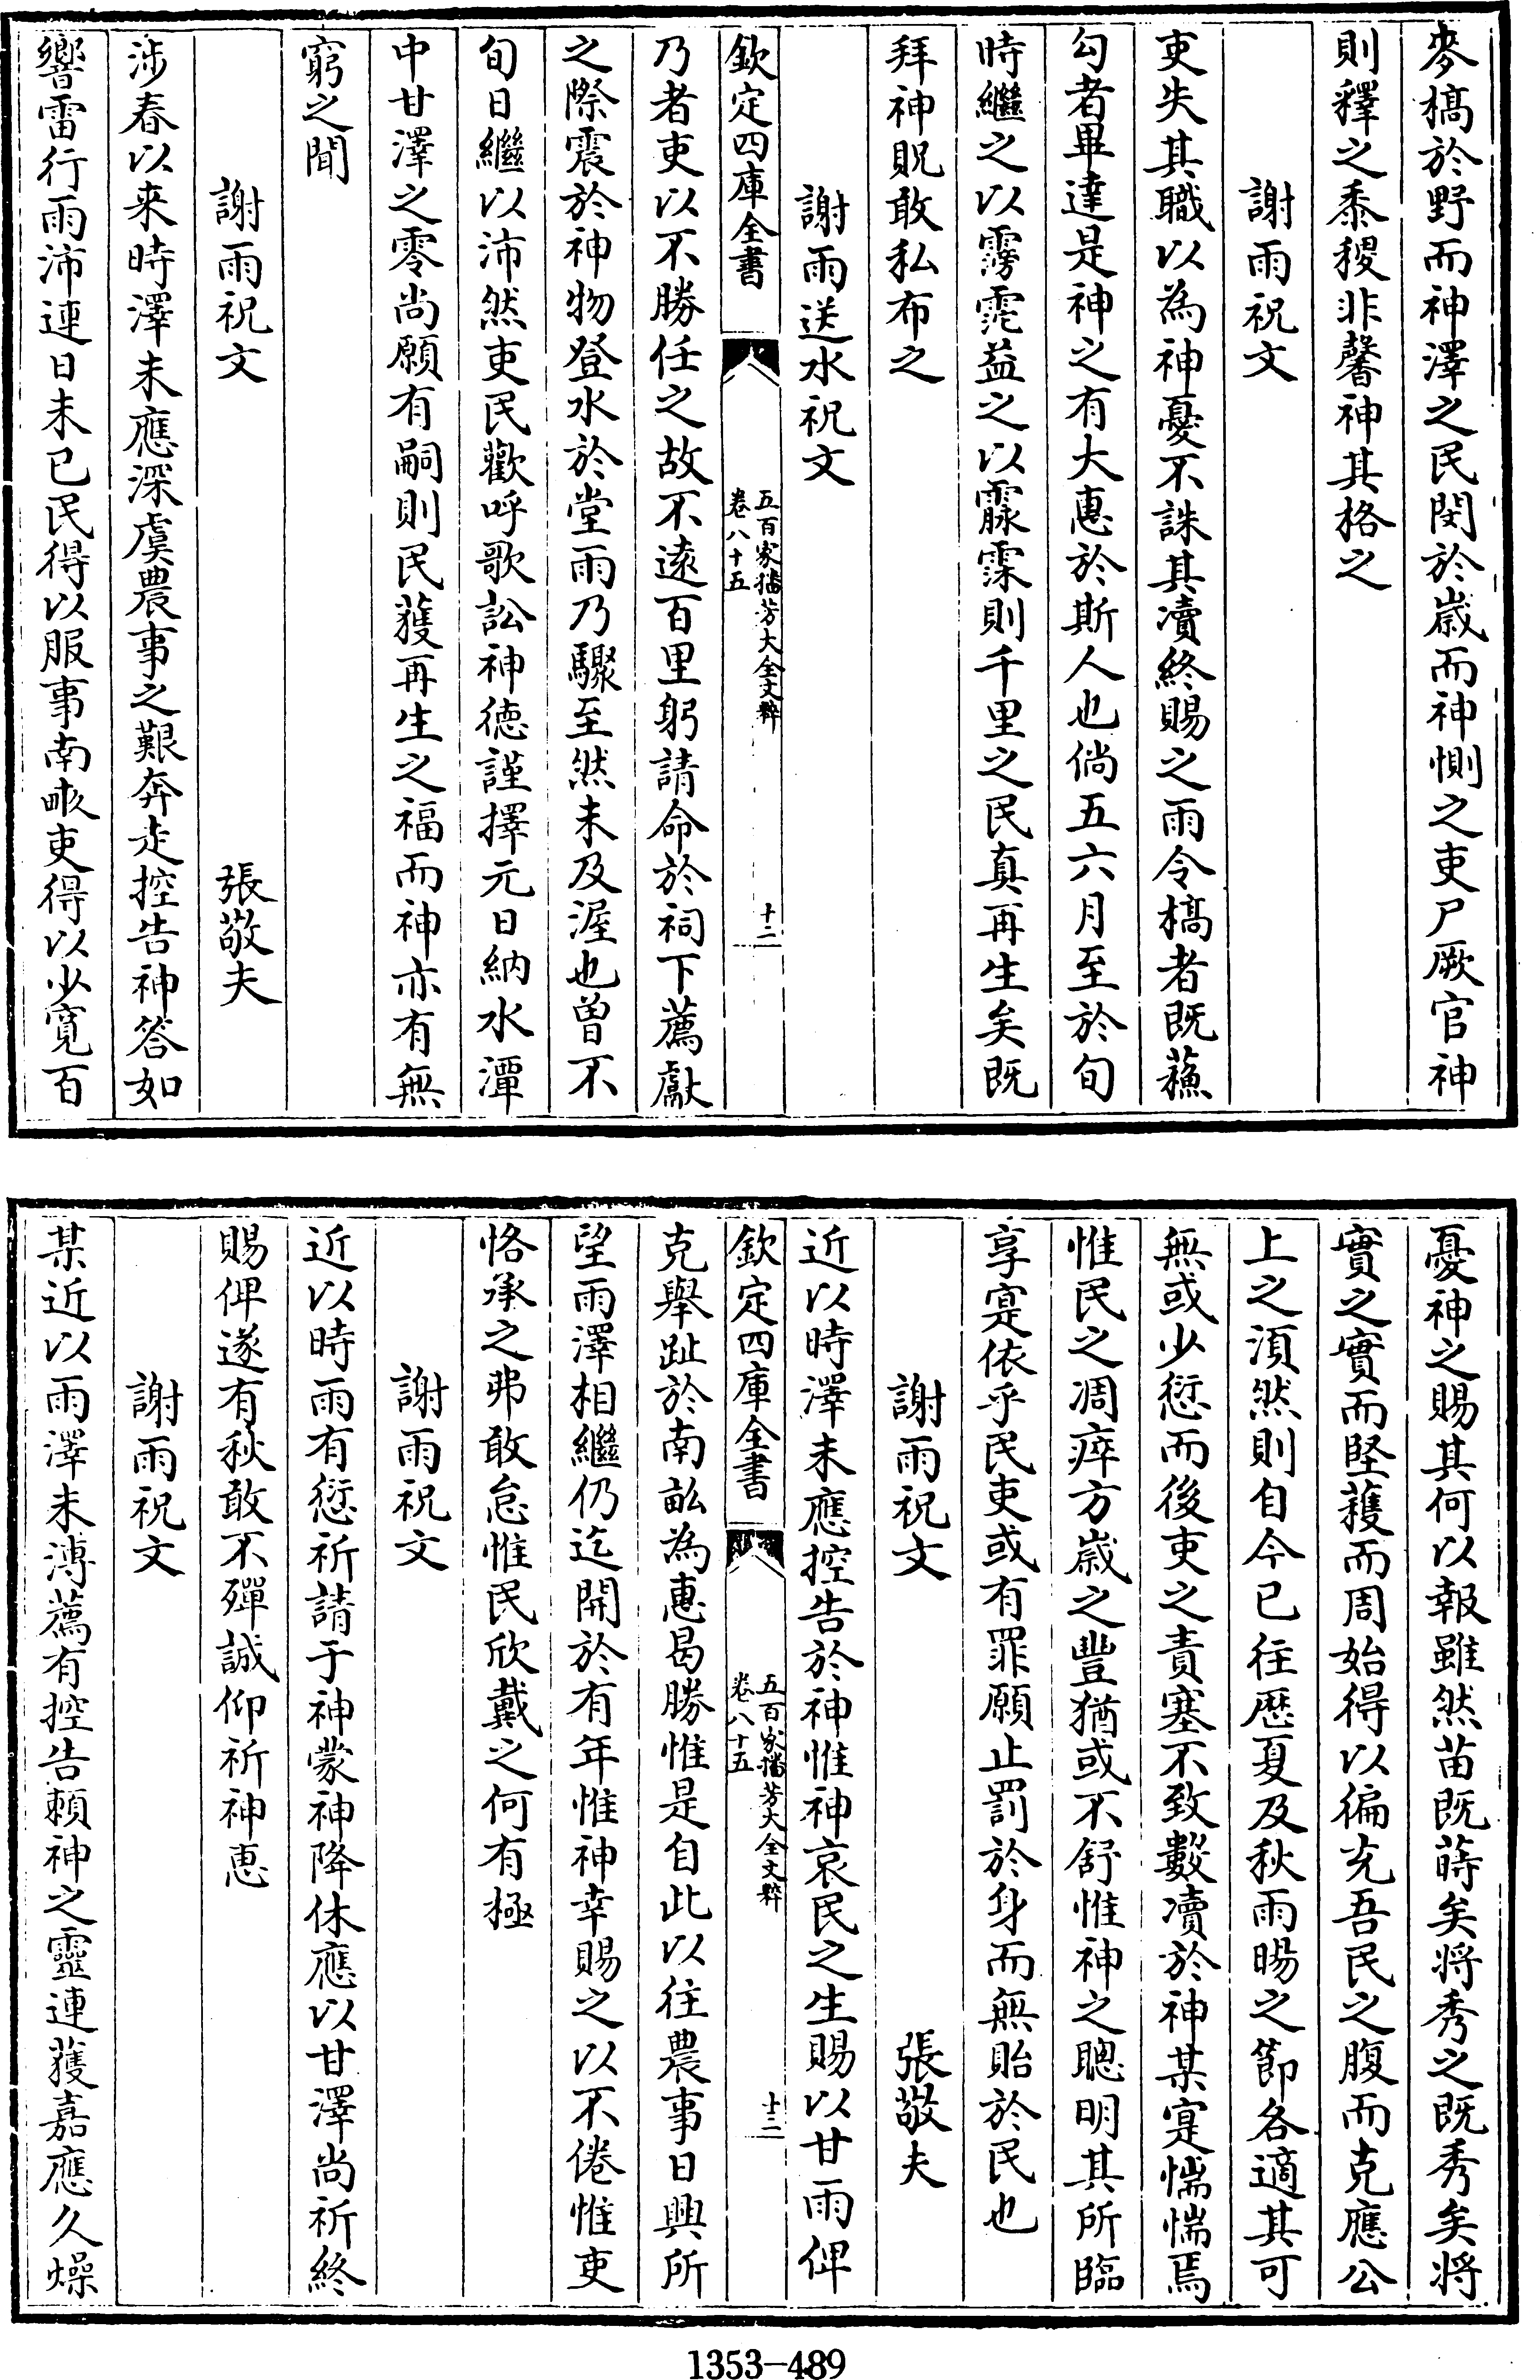 麥槁於野而神澤之民閔於歲而神惻之吏尸厥官神
則釋之黍稷非馨神其格之
謝雨祝文
吏失其職以為神憂不誅其瀆終賜之雨令槁者既蘓
勾者畢達是神之有大惠於斯人也倘五六月至於旬
時繼之以霶霔益之以霡霂則千里之民真再生矣既
拜神貺敢私布之
謝雨送水祝文
欽定四庫全書
五百家播芳大全文粹
卷八十五
十二
乃者吏以不勝任之故不遠百里躬請命於祠下薦獻
之際震於神物登水於堂雨乃驟至然未及渥也曽不
旬日繼以沛然吏民歡呼歌訟神徳謹擇元日納水潭
中甘澤之零尚願有嗣則民蒦再生之福而神亦有無
窮之聞
謝雨祝文
張敬夫
涉春以来時澤未應深虞農事之艱奔走控告神答如
響雷行雨沛連日未已民得以服事南畝吏得以少寛百
憂神之賜其何以報雖然苗既蒔矣将秀之既秀矣将
實之實而堅穫而周始得以徧充吾民之腹而克應公
上之湏然則自今已往歴夏及秋雨暘之節各適其可
無或少愆而後吏之責塞不致數瀆於神某寔惴惴焉
惟民之凋瘁方歲之豐猶或不舒惟神之聰明其所臨
享寔依乎民吏或有罪願止罰於身而無貽於民也
謝雨祝文
張敬夫
近以時澤未應控告於神惟神哀民之生賜以甘雨俾
欽定四庫全書
五百家播芳大全文粹
卷八十五
十三
克舉趾於南畆為惠曷勝惟是自此以往農事日興所
望雨澤相繼仍迄開於有年惟神幸賜之以不倦惟吏
恪承之弗敢怠惟民欣戴之何有極
謝雨祝文
近以時雨有愆祈請于神蒙神降休應以甘澤尚祈終
賜俾遂有秋敢不殫誠仰祈神恵
謝雨祝文
某近以雨澤未溥薦有控告頼神之靈連蒦嘉應久燥
1353-489